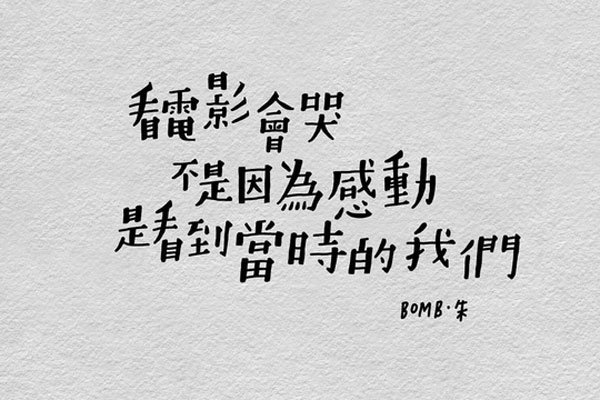 看電影會哭
不是因為感動
是看到當時的我們
BOMB·朱